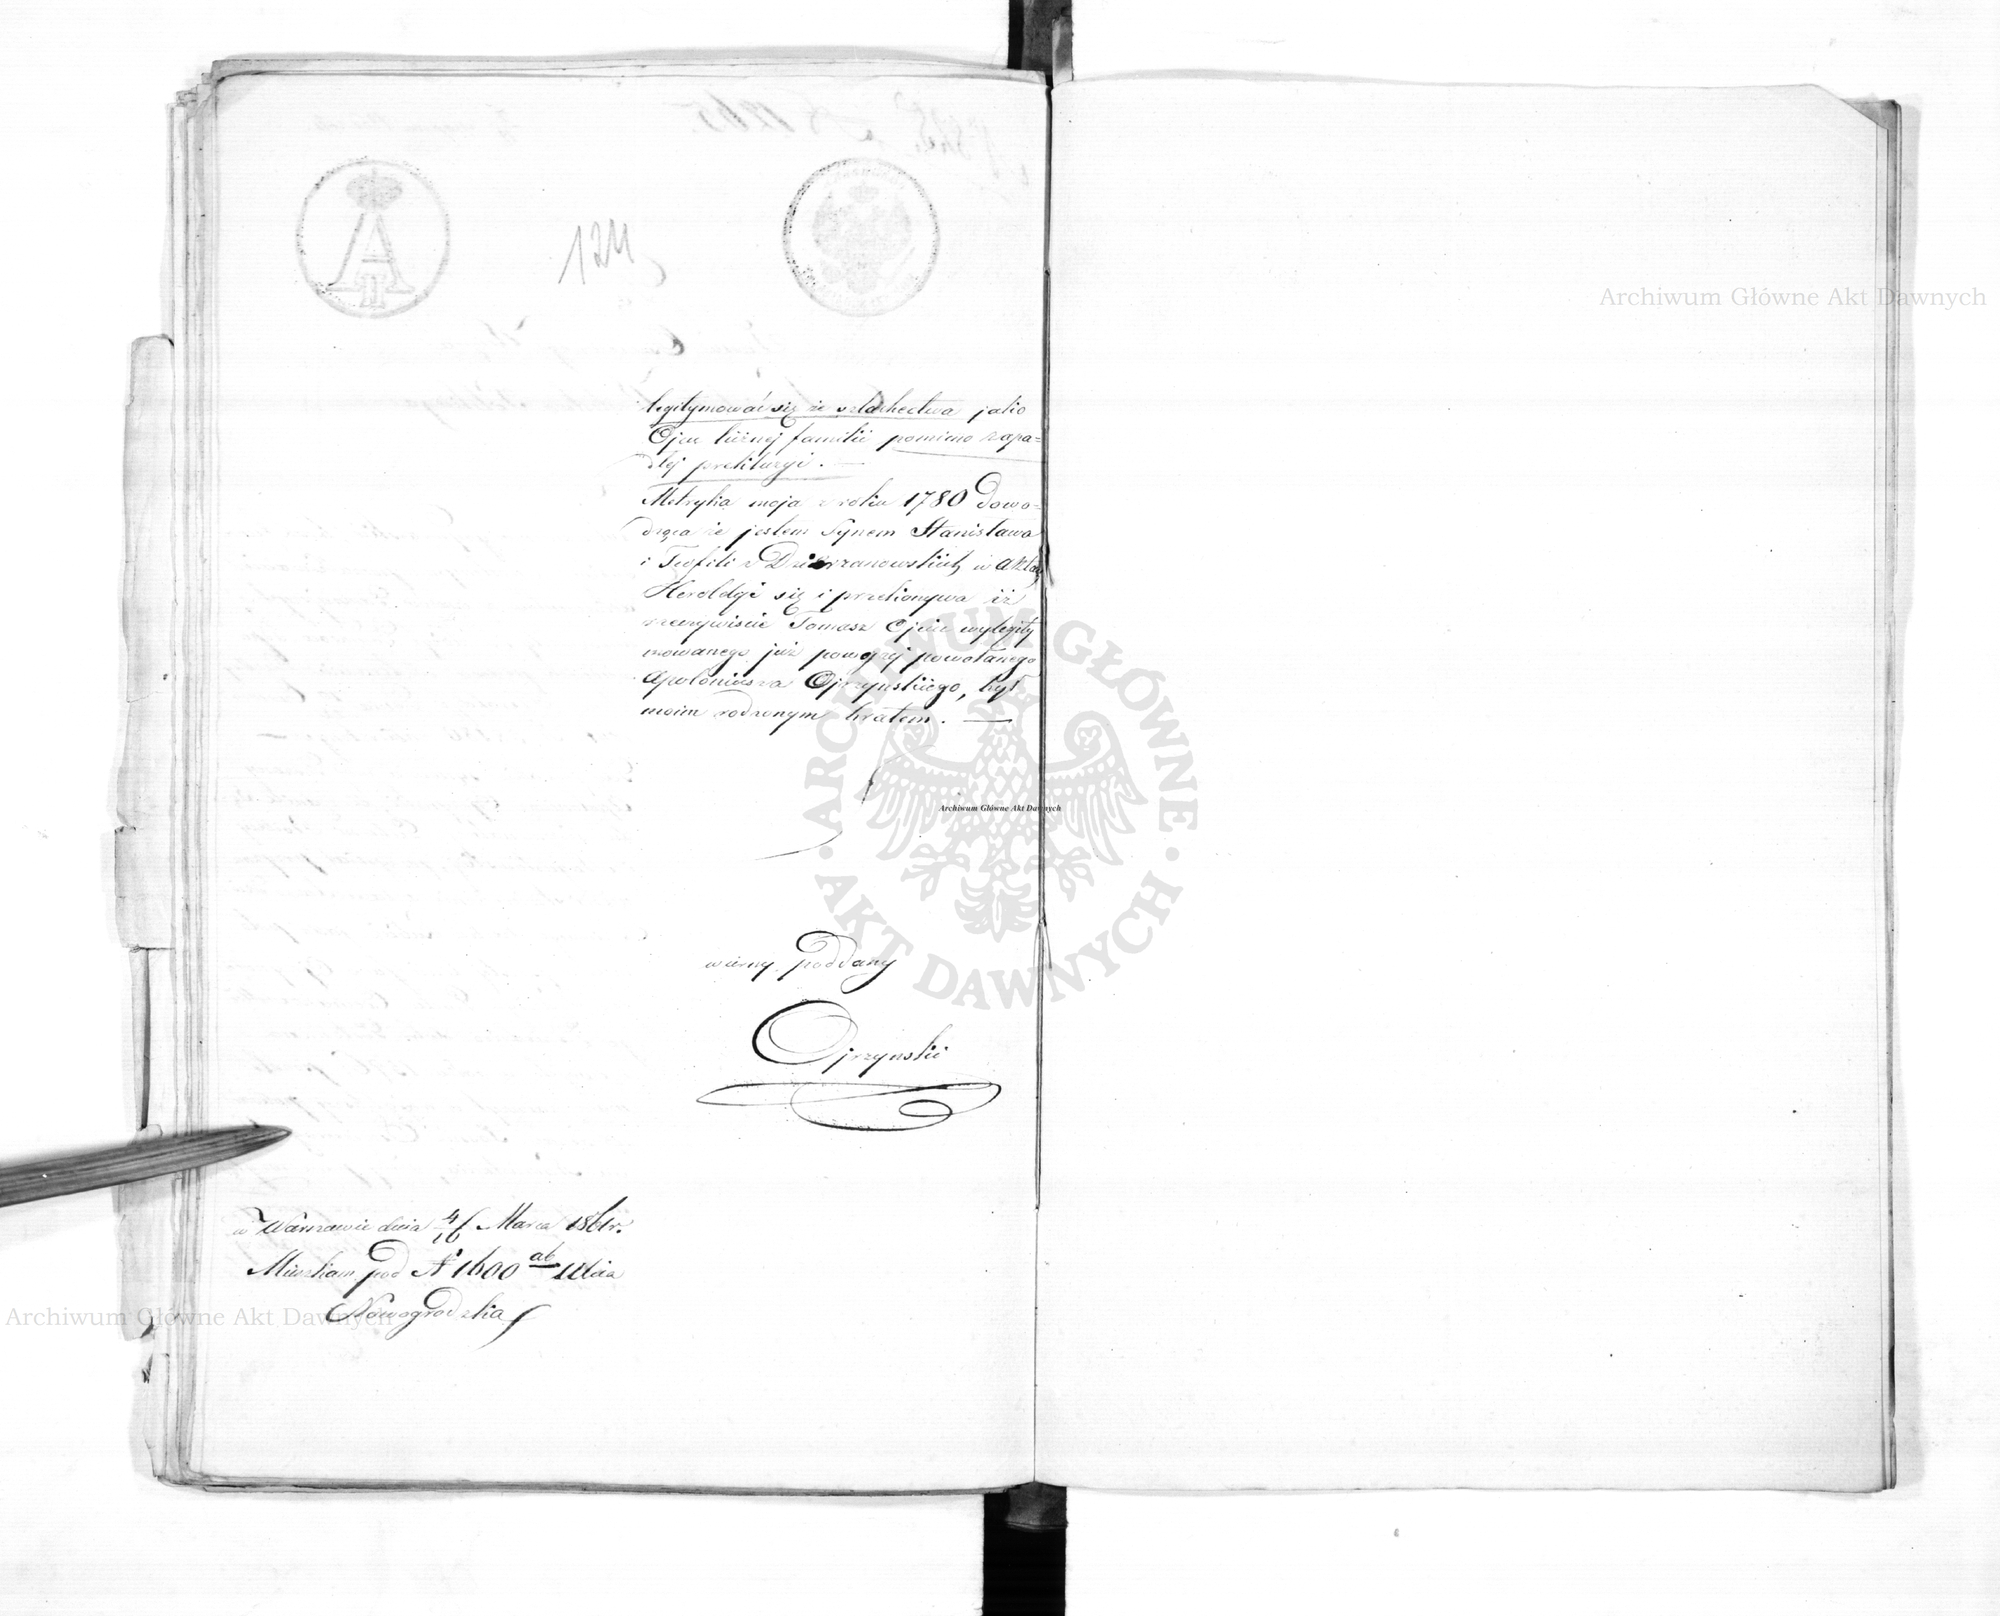 124
legitymować się ze szlachectwa jako
Ojcu liżnej familii pomimo zapa-
dłej prekluzyi. —
Metryka moja z roku 1780 dowo-
dząca że jestem Synem Stanisława
i Teofili z Dzierzanowskich w aktach
Heroldyi się i przekonywa iż
rzeczywiście Tomasz Ojciec wylegity
mowanego już powyżej powołanego
Apoloniusza Ojrzyńskiego, był
moim rodzonym bratem. —
wierny poddany
Ojrzyński
w Warszawie dnia 4/16 Marca 1861r.
Mieszkam pod Nº 1600 ab Ulica
Nowogrodzka
Archiwum Główne Akt Dawnych
Archiwum Główne Akt Dawnych
Archiwum Główne Akt Dawnych
ARCHIWUM GŁÓWNE
AKT DAWNYCH